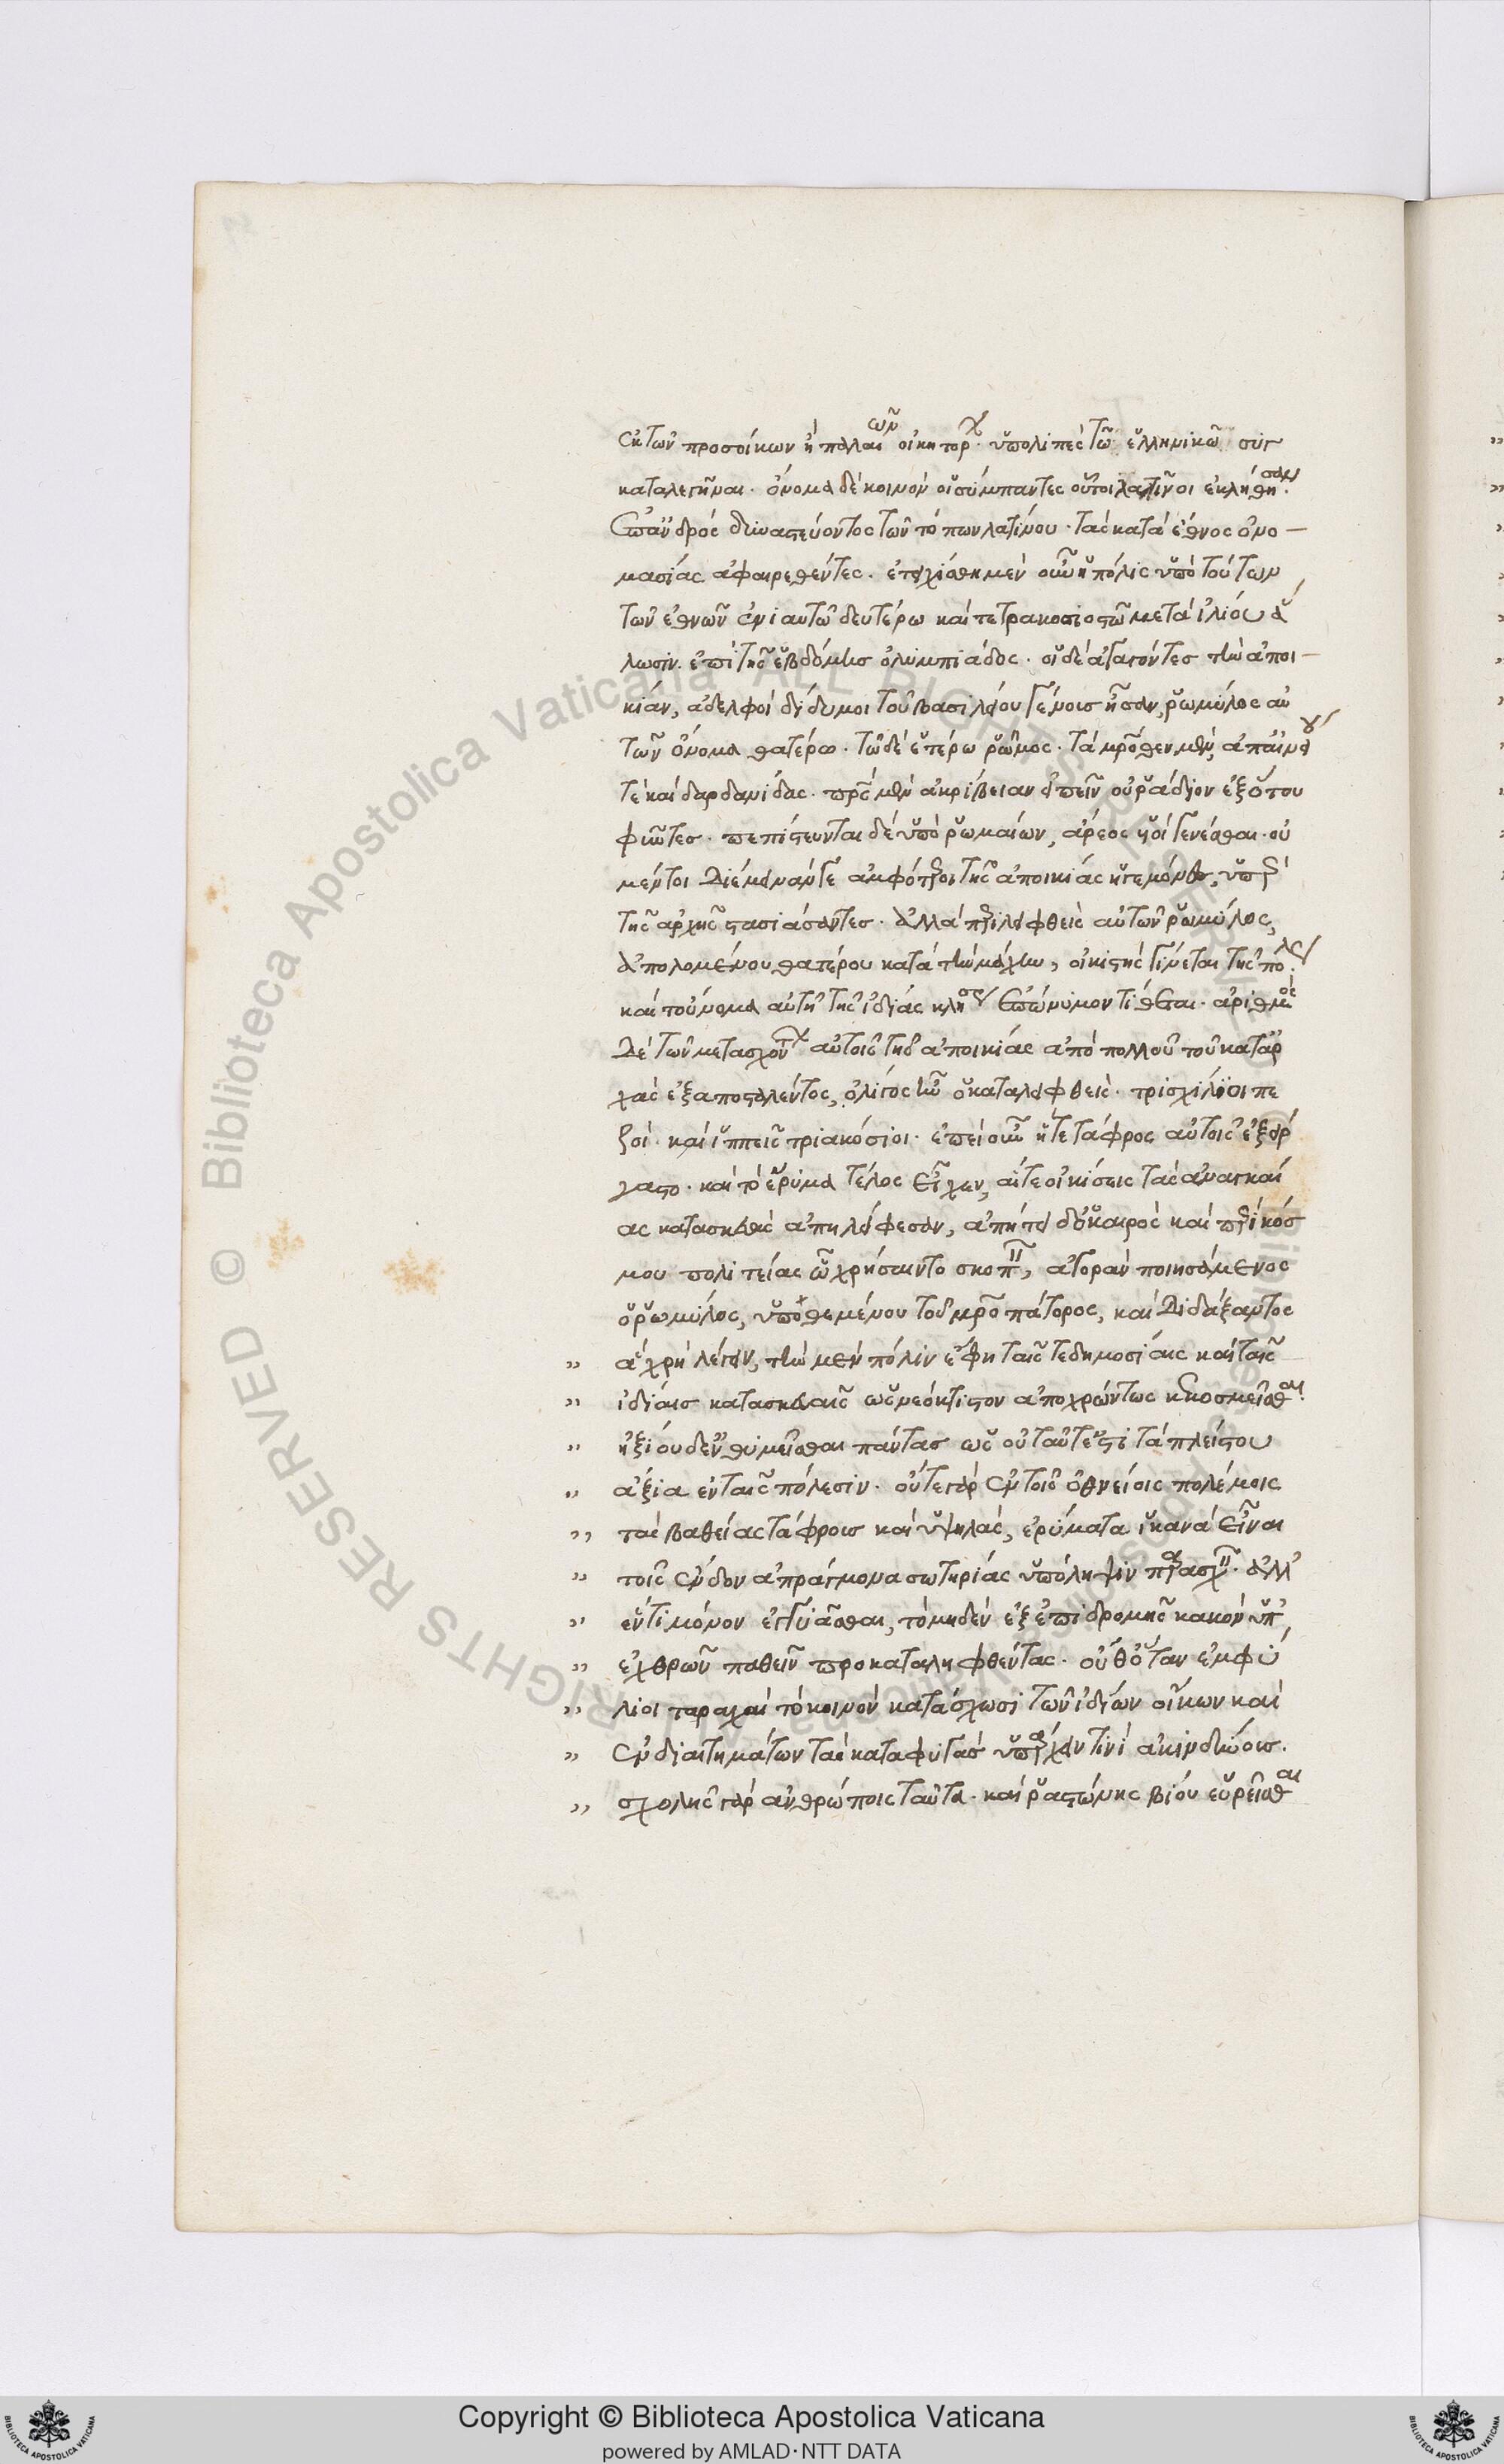 ἐκ τῶν προσοίκων ἢ παλαιῶν οἰκητόρων ὑπολιπὲς τῶ ἑλληνικῶ συγ
καταλεγῆναι. ὄνομα δὲ κοινὸν οἱ σύμπαντες οὗτοι λατῖνοι ἐκλήθησαν.
ἐπ' ἀνδρὸς δυναστεύοντος τῶν τόπων λατίνου. τὰς κατὰ ἔθνος ὀνο-
μασίας ἀφαιρεθέντες. ἐτειχίσθη μὲν οὖν ἡ πόλις ὑπὸ τούτων
τῶν ἐθνῶν ἐνιαυτῶ δευτέρω καὶ τετρακοσιοστῶ μετὰ ἰλίου ἅ
λωσιν. ἐπὶ τῆς ἑβδόμης ὀλυμπιάδος. οἱ δὲ ἀγαγόντες τὴν ἀποι-
κίαν, ἀδελφοὶ δίδυμοι τοῦ βασιλείου γένους ἦσαν, ῥωμύλος αὐ
τῶν ὄνομα θατέρω. τῶ δὲ ἑτέρω ῥῶμος. τὰ μητρόθεν μὲν, ἀπ' αἰνείου
τὲ καὶ δαρδανίδας. πατρὸς μὲν ἀκρίβειαν εἰπεῖν οὐ ῥάδιον ἐξ ὅτου
φύντες. πεπίστευνται δὲ ὑπὸ ῥωμαίων, ἄρεος υἱοὶ γενέσθαι. οὐ
μέντοι διέμειναν γε ἀμφότεροι τῆς ἀποικίας ἡγεμόνες, ὑπὲρ
τῆς ἀρχῆς στασιάσαντες. ἀλλὰ περιλειφθεὶς αὐτῶν ῥωμύλος,
ἀπολομένου θατέρου κατὰ τὴν μάχην, οἰκιστὴς γίνεται τῆς πόλεως.
καὶ τοὔνομα αὐτῆ τῆς ἰδίας κλήσεως ἐπώνυμον τίθεται. ἀριθμὸς
δὲ τῶν μετασχόντων αὐτοῖς τῆς ἀποικίας ἀπὸ πολλοῦ τοῦ καταρ
χὰς ἐξαποσταλέντος, ὀλίγος ἦν ὁ καταλειφθείς. τρισχίλιοι πε
ζοὶ. καὶ ἱππεῖς τριακόσιοι. ἐπεὶ οὖν ἥ τε τάφρος αὐτοῖς ἐξείρ
γαστο. καὶ τὸ ἔρυμα τέλος εἶχεν, αἵ τε οἰκίσεις τὰς ἀναγκαί
ας κατασκευὰς ἀπηλείφεσαν, ἀπήτει δ' ὁ καιρὸς καὶ περὶ κόσ
μου πολιτείας ὧ χρήσαιντο σκοπεῖν, ἀγορὰν ποιησάμενος
ὁ ῥωμύλος, ὑποθεμένου τοῦ μητροπάτορος, καὶ διδάξαντος
ἃ χρὴ λέγειν, τὴν μὲν πόλιν ἔφη ταῖς τε δημοσίαις καὶ ταῖς
ἰδίαις κατασκευαῖς ὡς νεόκτιστον ἀποχρώντως κεκοσμεῖσθαι.
ἠξίου δ' ἐνθυμεῖσθαι πάντας ὡς οὐ ταῦτ' ἐστὶ τὰ πλείστου
ἄξια ἐν ταῖς πόλεσιν. οὔτε γὰρ ἐν τοῖς ὀθνείοις πολέμοις
τὰς βαθείας τάφρους καὶ ὑψηλὰς, ἐρύματα ἱκανὰ εἶναι
τοῖς ἔνδον ἀπράγμονα σωτηρίας ὑπόληψιν παρασχεῖν. ἀλλ'
ἕν τι μόνον ἐγγυᾶσθαι, τὸ μηδὲν ἐξ ἐπιδρομῆς κακὸν ὑπ'
ἐχθρῶν παθεῖν προκαταληφθέντας. οὔθ' ὅταν ἐμφύ
λιοι ταραχαὶ τὸ κοινὸν κατάσχωσι τῶν ἰδίων οἴκων καὶ
ἐνδιαιτημάτων τὰς καταφυγὰς ὑπάρχειν τινὶ ἀκινδύνους.
σχολῆς γὰρ ἀνθρώποις ταῦτα. καὶ ῥαστώνης βίου εὑρεῖσθαι
Copyright © Biblioteca Apostolica Vaticana
powered by AMLAD·NTT DATA